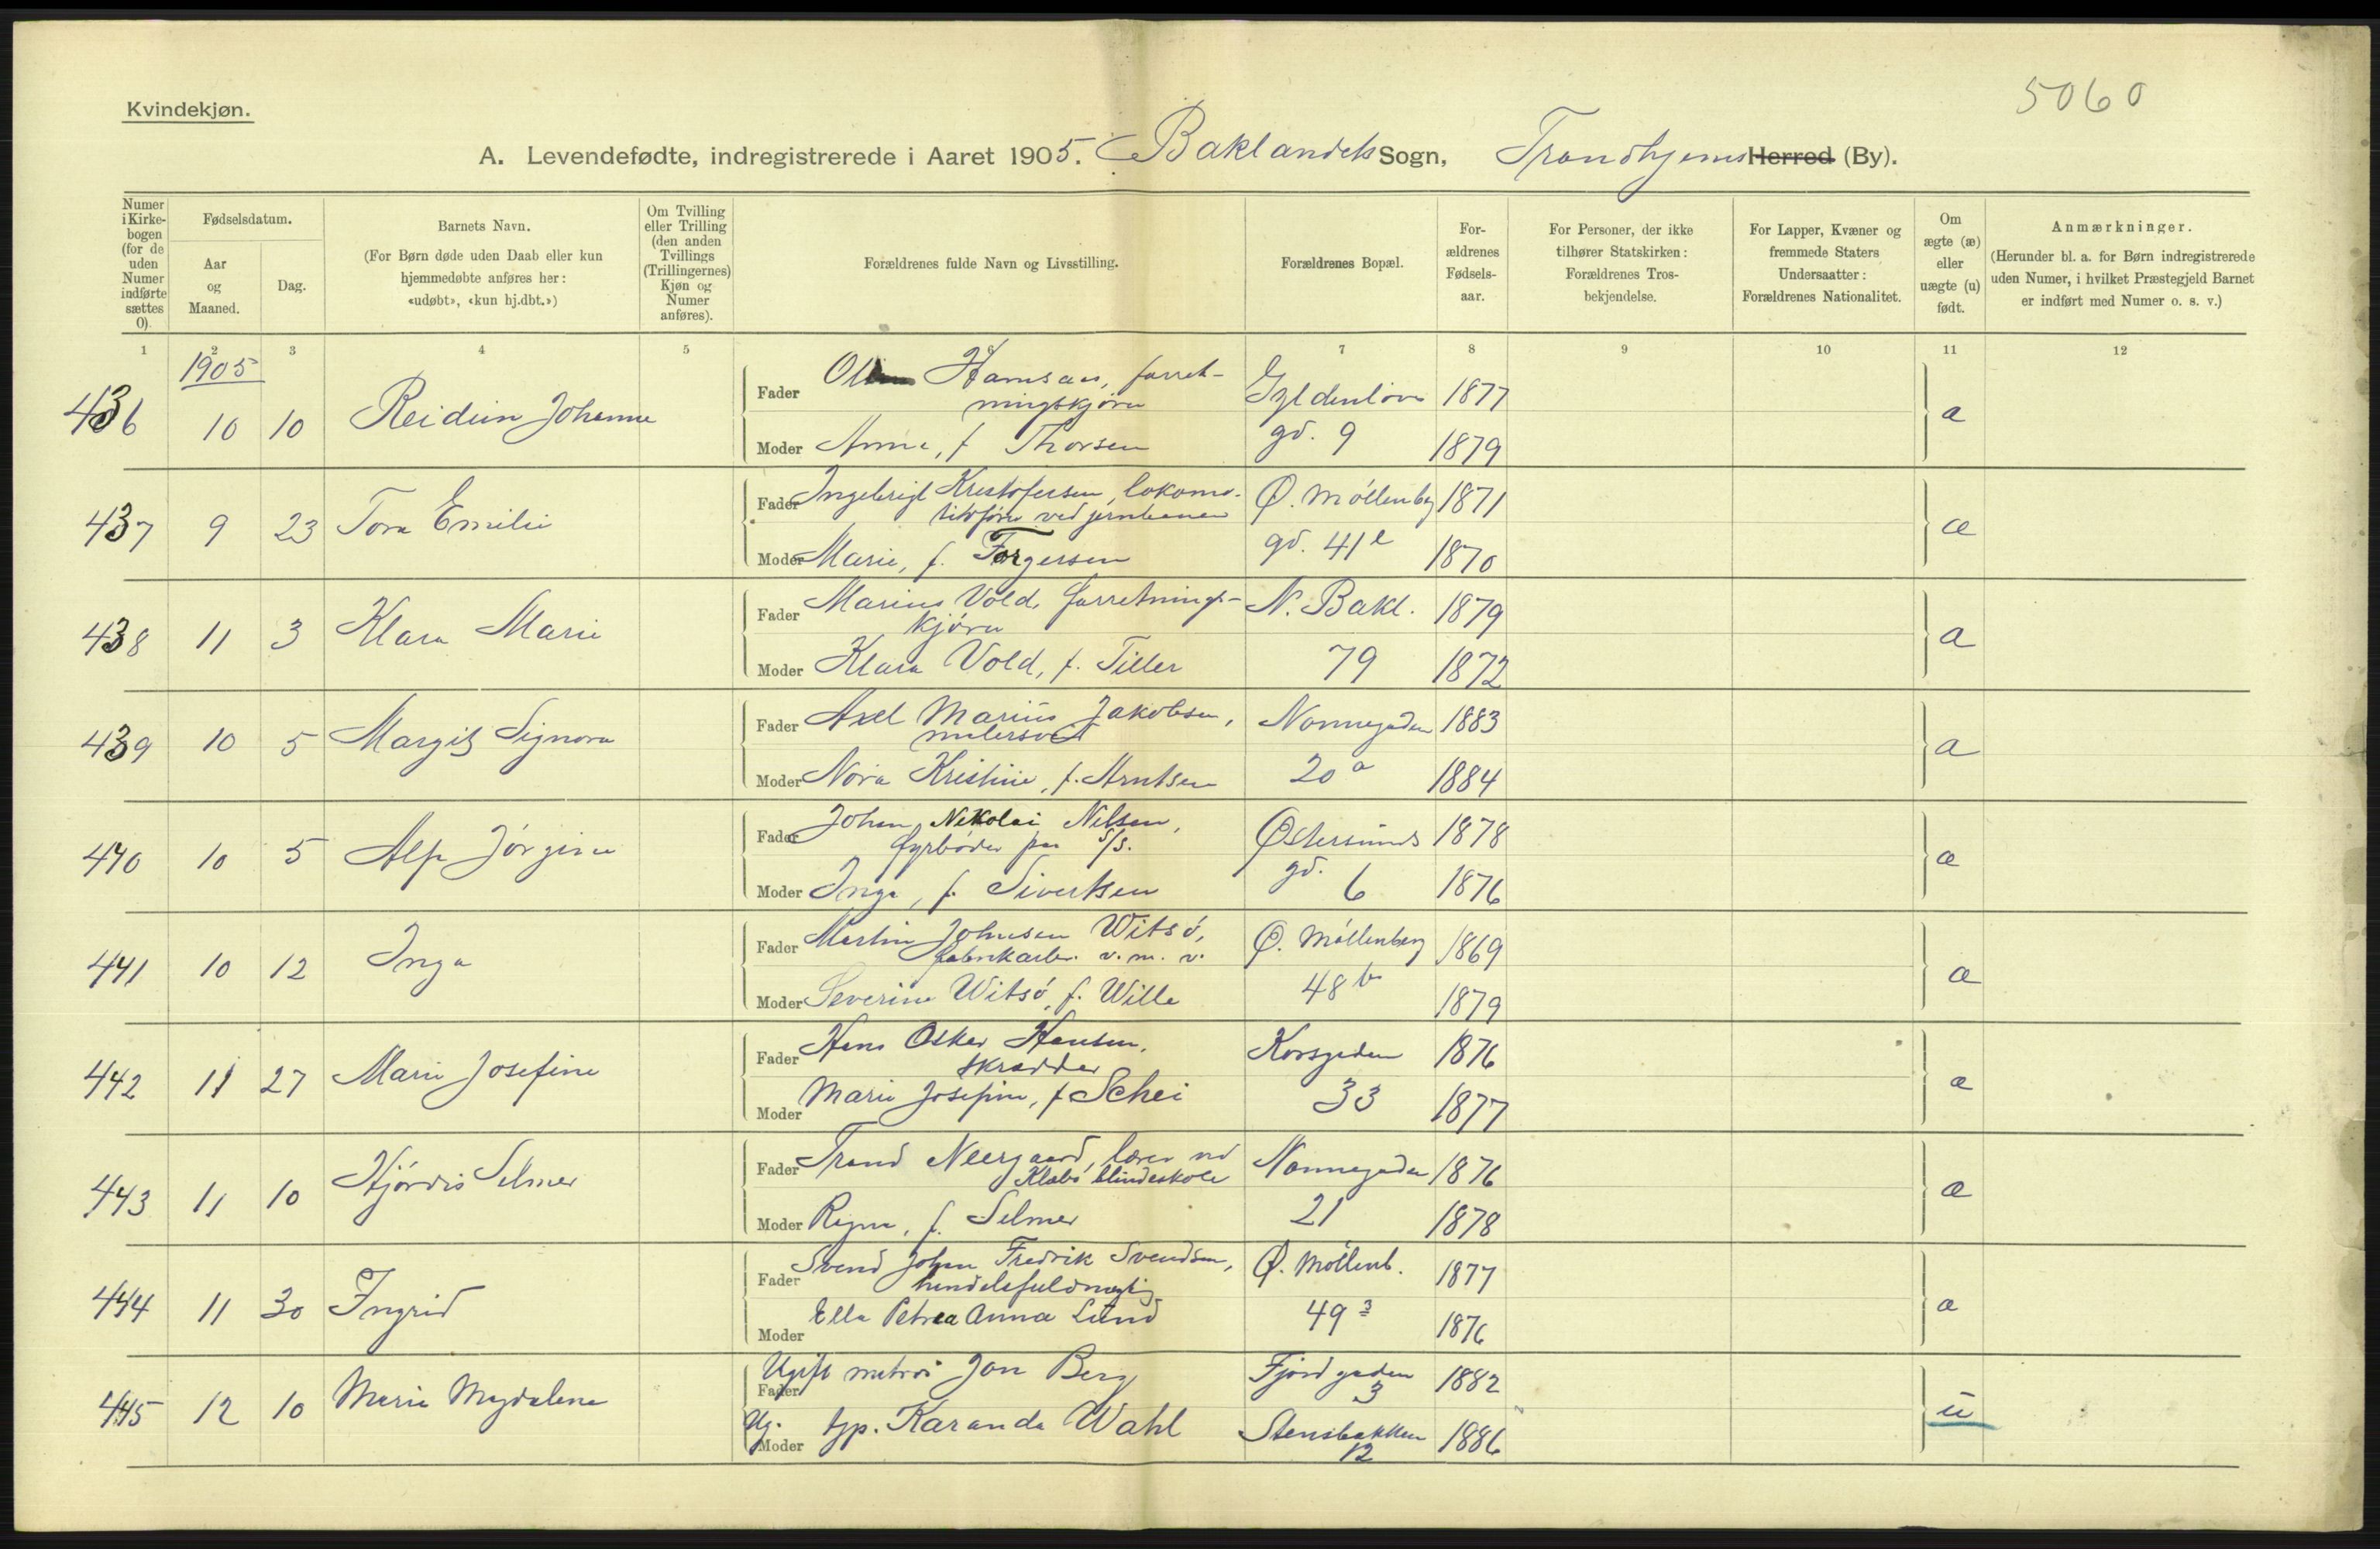 5060
Kvindekjøn.
A. Levendefødte, indregistrerede i Aaret 1905. Baklandets Sogn, Trondhjems Herred (By).
Numer i Kirkebogen (for de uden Numer indførte sættes 0).
Fødselsdatum.
Aar og Maaned.
Dag.
Barnets Navn.
(For Børn døde uden Daab eller kun hjemmedøbte anføres her: «udøbt», «kun hj.dbt.»)
Om Tvilling eller Trilling (den anden Tvillings (Trillingernes) Kjøn og Numer anføres).
Forældrenes fulde Navn og Livsstilling.
Forældrenes Bopæl.
For-ældrenes Fødsels-aar.
For Personer, der ikke tilhører Statskirken: Forældrenes Tros-bekjendelse.
For Lapper, Kvæner og fremmede Staters Undersaatter: Forældrenes Nationalitet.
Om ægte (æ) eller uægte (u) født.
Anmærkninger.
(Herunder bl. a. for Børn indregistrerede uden Numer, i hvilket Præstegjeld Barnet er indført med Numer o. s. v.)
1 2 3 4 5 6 7 8 9 10 11 12
1905
436 10 10 Reidun Johanne
Fader Hansen, forret-
ningskjører
Gyldenløves 1877
Moder Anna, f. Thorsen gd. 9 1879
æ
437 9 23 Tora Emilie
Fader Ingebrigt Kristofersen, lokomo-
tivfører ved jernbanen
Ø. Møllenbg 1871
Moder Marie, f. Torgersen gd. 41 1870
æ
438 11 3 Klara Marie
Fader Marius Vold, forretnings-
kjører
N. Bakl. 1879
Moder Klara Vold, f. Tiller 79 1872
æ
439 10 5 Margit Signora
Fader Axel Marius Jakobsen,
malersv.
Nonnegaden 1883
Moder Nora Kristine, f. Arntsen 20 a 1884
æ
440 10 5 Alfa Jørgine
Fader Johan Nikolai Nilsen,
fyrbøder paa S/S.
Østersunds 1878
Moder Inga, f. Sivertsen gd. 6 1876
æ
441 10 12 Inga
Fader Martin Johnsen Witsø,
fabrikarb. v. m. v.
Ø. Møllenberg 1869
Moder Severine Witsø, f. Wille 48 b 1879
æ
442 11 27 Marie Josefine
Fader Hans Oskar Hansen,
skrædder
Korsgaden 1876
Moder Marie Josefine, f. Schei 33 1877
æ
443 11 10 Hjørdis Selmer
Fader Trond Neergaard, lærer ved
Klæbø blindeskole
Nonnegaden 1876
Moder Ragna, f. Selmer 21 1878
æ
444 11 30 Ingrid
Fader Svend Johan Fredrik Svendsen,
handelsfuldmægtig
Ø. Møllenb. 1877
Moder Ella Petrea Anna Lund 49 1876
æ
445 12 10 Marie Magdalena
Fader Ugift matros Jon Berg Fjordgaden 3 1882
Moder Ug. tjp. Karanda Wahl Stensbakken 12 1886
u